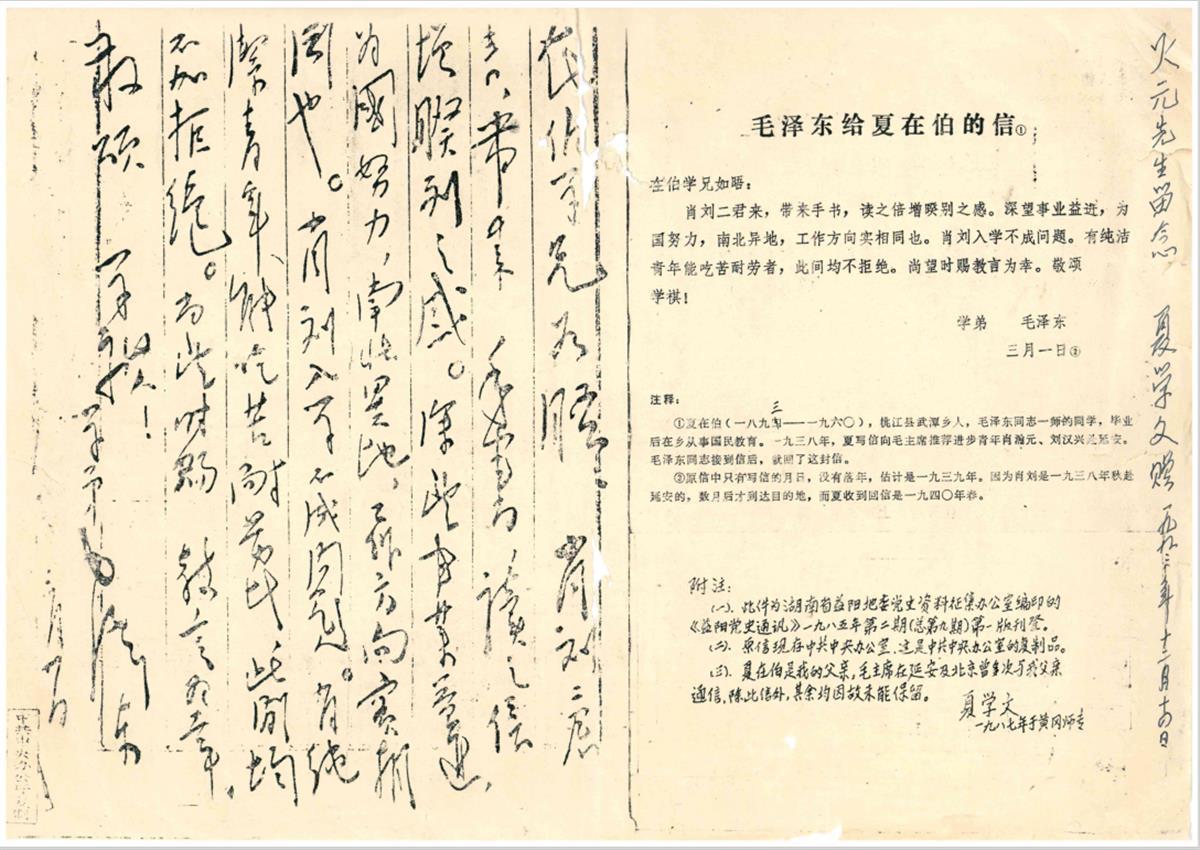 在伯学兄如晤。肖刘二君
来，带来手书，读之倍
增暌别之感。深望事业益进，
为國努力，南北異地，工作方向實相
同也。肖刘入学不成问题。有純
潔青年、能吃苦耐劳者，此间均
不加拒绝。尚望时赐教言为幸。
敬颂 学祺！学弟毛泽东
三月一日
毛泽东给夏在伯的信①
在伯学兄如晤：
肖刘二君来，带来手书，读之倍增暌别之感。深望事业益进，为
国努力，南北异地，工作方向实相同也。肖刘入学不成问题。有纯洁
青年能吃苦耐劳者，此间均不拒绝。尚望时赐教言为幸。敬颂
学祺！
学弟 毛泽东
三月一日②
注释：
三
①夏在伯（一八九四——一九六〇），桃江县武潭乡人，毛泽东同志一师的同学，毕业
后在乡从事国民教育。一九三八年，夏写信向毛主席推荐进步青年肖瀚元、刘汉兴赴延安。
毛泽东同志接到信后，就回了这封信。
②原信中只有写信的月日，没有落年，估计是一九三九年。因为肖刘是一九三八年秋赴
延安的，数月后才到达目的地，而夏收到回信是一九四〇年春。
附注：
（一）、此件为湖南省益阳地委党史资料征集办公室编印的
《益阳党史通讯》一九八五年第二期（总第九期）第一版刊登。
（二）、原信现存中共中央办公室，这是中共中央办公室的复制品。
（三）、夏在伯是我的父亲，毛主席在延安及北京曾多次与我父亲
通信，除此信外，其余均因故未能保留。
夏学文
一九八七年于黄冈师专
火元先生留念 夏学文赠